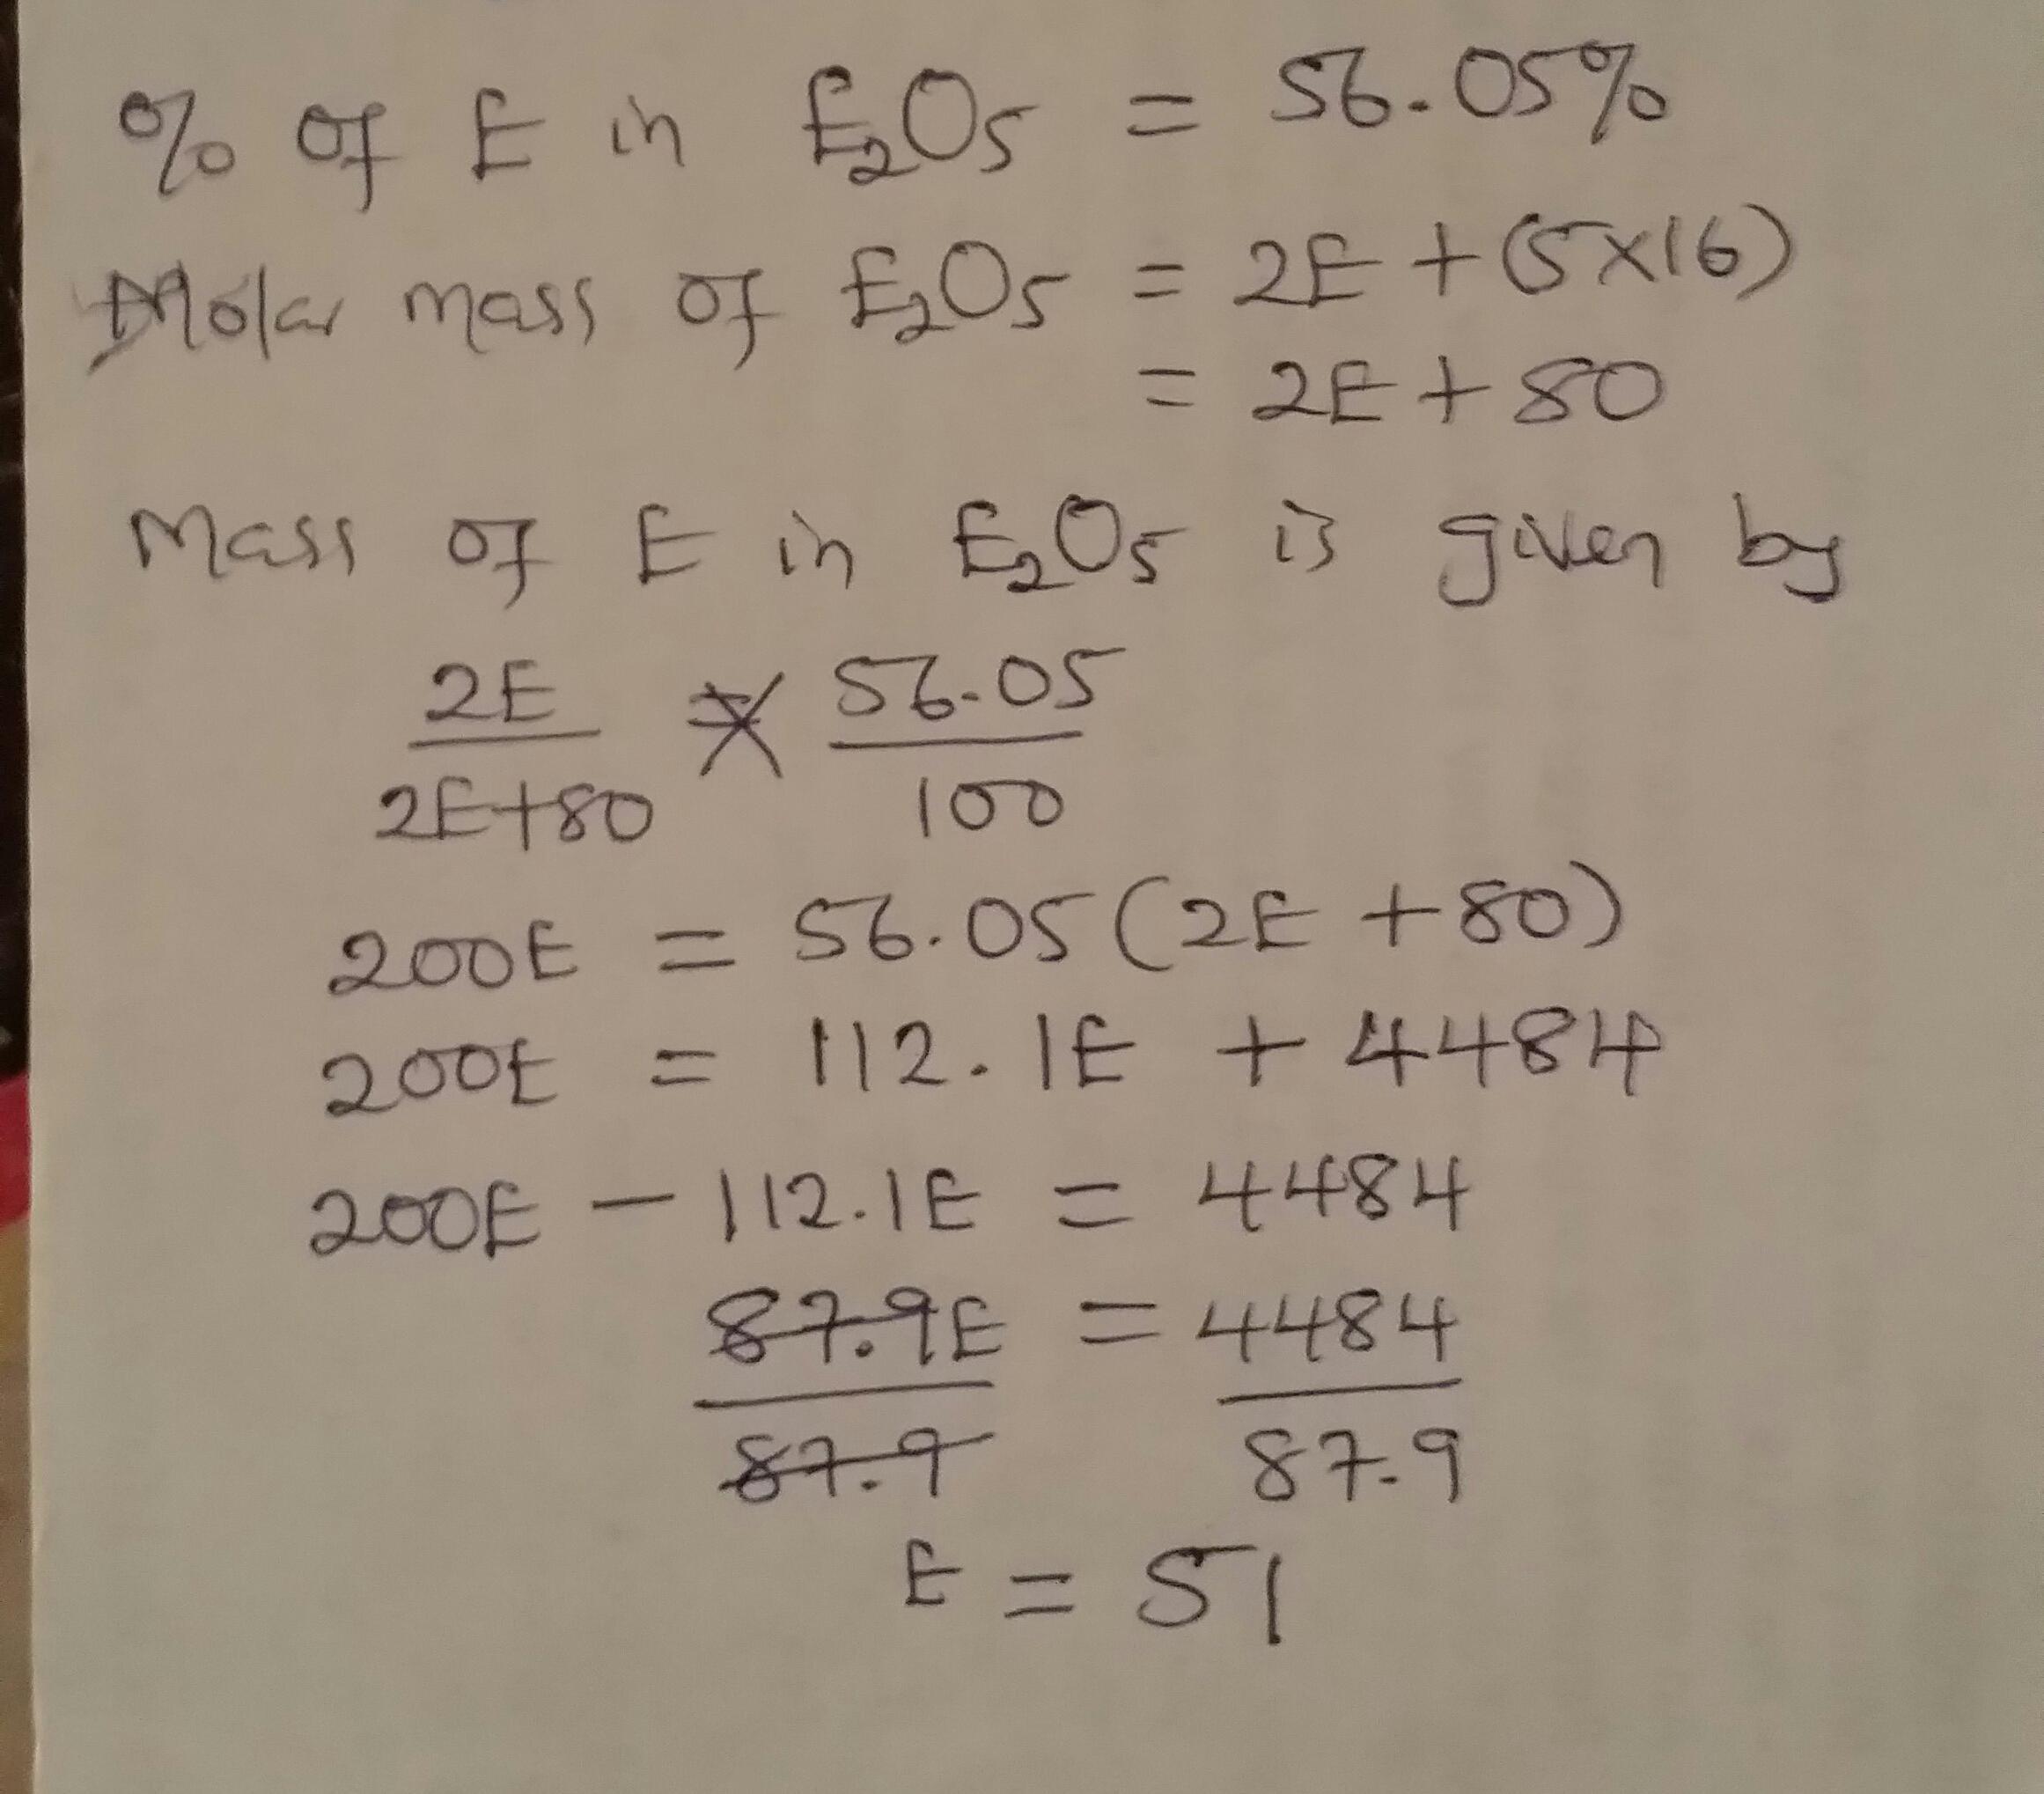 % of E in E₂O₅ = 56.05%
Molar mass of E₂O₅ = 2E + (5×16)
= 2E + 80
Mass of E in E₂O₅ is given by
2E 56.05
2E+80 100
200E = 56.05 (2E + 80)
200E = 112.1E + 4484
200E - 112.1E = 4484
87.9E = 4484
87.9 87.9
E = 51